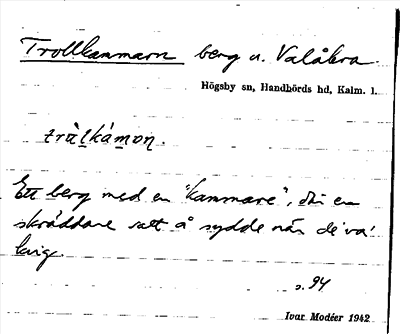 Trollkammarn berg u. Valåkra
Högsby sn, Handbörds hd, Kalm. l.
tràlkámɒn.
Ett berg med en "kammare", där en
skräddare satt å sydde när de va'
krig.
s. 94
Ivar Modéer 1942